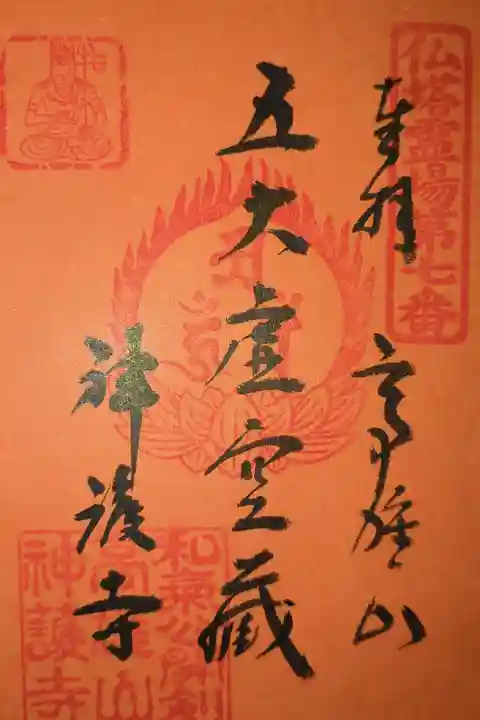 仏塔霊場第七番
奉拝 高雄山
五大虚空蔵
神護寺
和氣公創
高雄山
神護寺